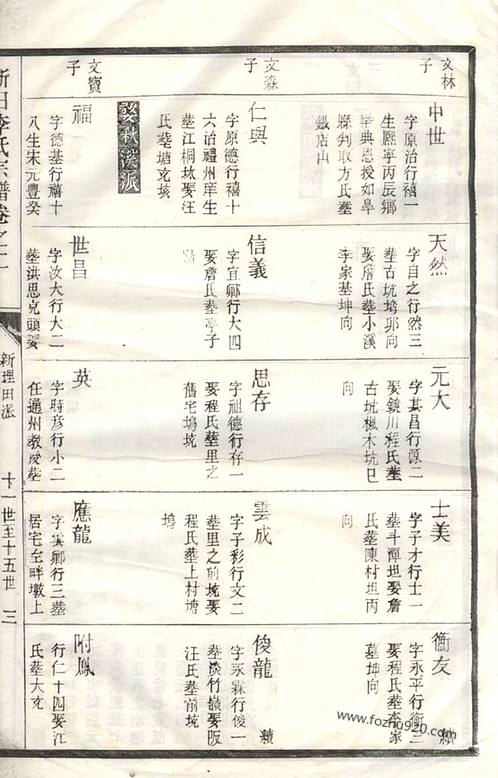 文林
子
中世
字原治行禧一
生熙寧丙辰鄉
舉典恩授如臯
縣判取方氏墓
鐵店山
文森
子
仁與
字原德行禧十
六治禮州庠生
墓江桐坎娶汪
氏墓塘充垓
婺秋溪派
文寶
子
福
字德基行禧十
八生宋元豐癸
天然
字自之行然三
墓古坑塆邜向
娶詹氏墓小溪
李家基坤向
信義
字宜卿行大四
娶詹氏墓亭子
世昌
字汝大行大二
墓洪思克頭娶
元大
字其昌行源二
娶鏡川程氏墓
古坑楓木坑巳
向
思存
字祖德行存一
娶程氏墓里之
舊宅塢坑
英
字時彥行小二
任通州教授墓
士美
字子才行士一
墓斗潭坦娶詹
氏墓陳村坦丙
向
雲成
字子彩行文二
墓里之前坑娶
程氏墓上村塘
塢
應龍
字雲卿行三墓
居宅全畔墩上
衞友
字永平行衞二
娶程氏墓李家
墓坤向
續
俊龍
字永霖行俊一
墓淡竹巖娶阪
汪氏墓前垓
續
附鳳
行仁十四娶江
氏墓大充
新田李氏宗譜卷之二
新理田派
十一世至十五世
三
www.fozhu920.com